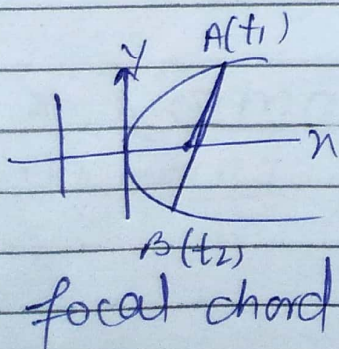 A(t1)
y
x
B(t2)
focal chord